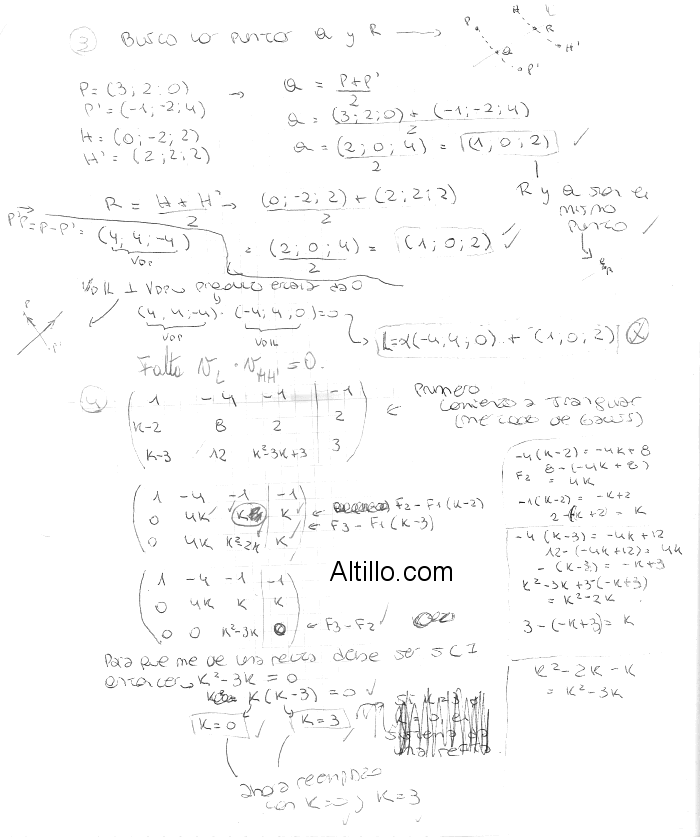 ③ Busco los puntos Q y R →
P H L R H' Q P'
P = (3; 2; 0) → Q = P+P' / 2
P' = (-1; -2; 4) Q = (3; 2; 0) + (-1; -2; 4) / 2
H = (0; -2; 2)
H' = (2; 2; 2) Q = (2; 0; 4) / 2 = (1, 0; 2) ✓
R = H + H' / 2 → (0; -2; 2) + (2; 2; 2) / 2
R y Q son el
mismo
punto ✓
P'P = P - P' = (4, 4; -4)
VDP
= (2; 0; 4) / 2 = (1; 0; 2) ✓
⊥ producto escalar da 0
(4, 4; -4) · (-4; 4, 0) = 0
L = λ(-4, 4; 0) + (1, 0; 2)
Falta V_L · V_HH' = 0.
④
1 -4 -1 | -1
K-2 8 2 | 2
K-3 12 K²-3K+3 | 3
← Primero
comienzo a triangular
(método de Gauss)
1 -4 -1 | -1
0 4K K | K ← F2 - F1(K-2)
0 4K K²-2K | K ← F3 - F1(K-3)
Altillo.com
1 -4 -1 | -1
0 4K K | K
0 0 K²-3K | 0 ← F3 - F2
-4(K-2) = -4K+8
F2 8-(-4K+8)
= 4K
-1(K-2) = -K+2
2-(-K+2) = K
-4(K-3) = -4K+12
12-(-4K+12) = 4K
-(K-3) = -K+3
K²-3K+3-(-K+3)
= K²-2K
3-(-K+3) = K
K²-2K-K
= K²-3K
Para que me de una recta debe ser SCI
entonces K²-3K = 0
K(K-3) = 0 ✓
K=0 ✓ K=3
ahora reemplazo
con K=0 y K=3